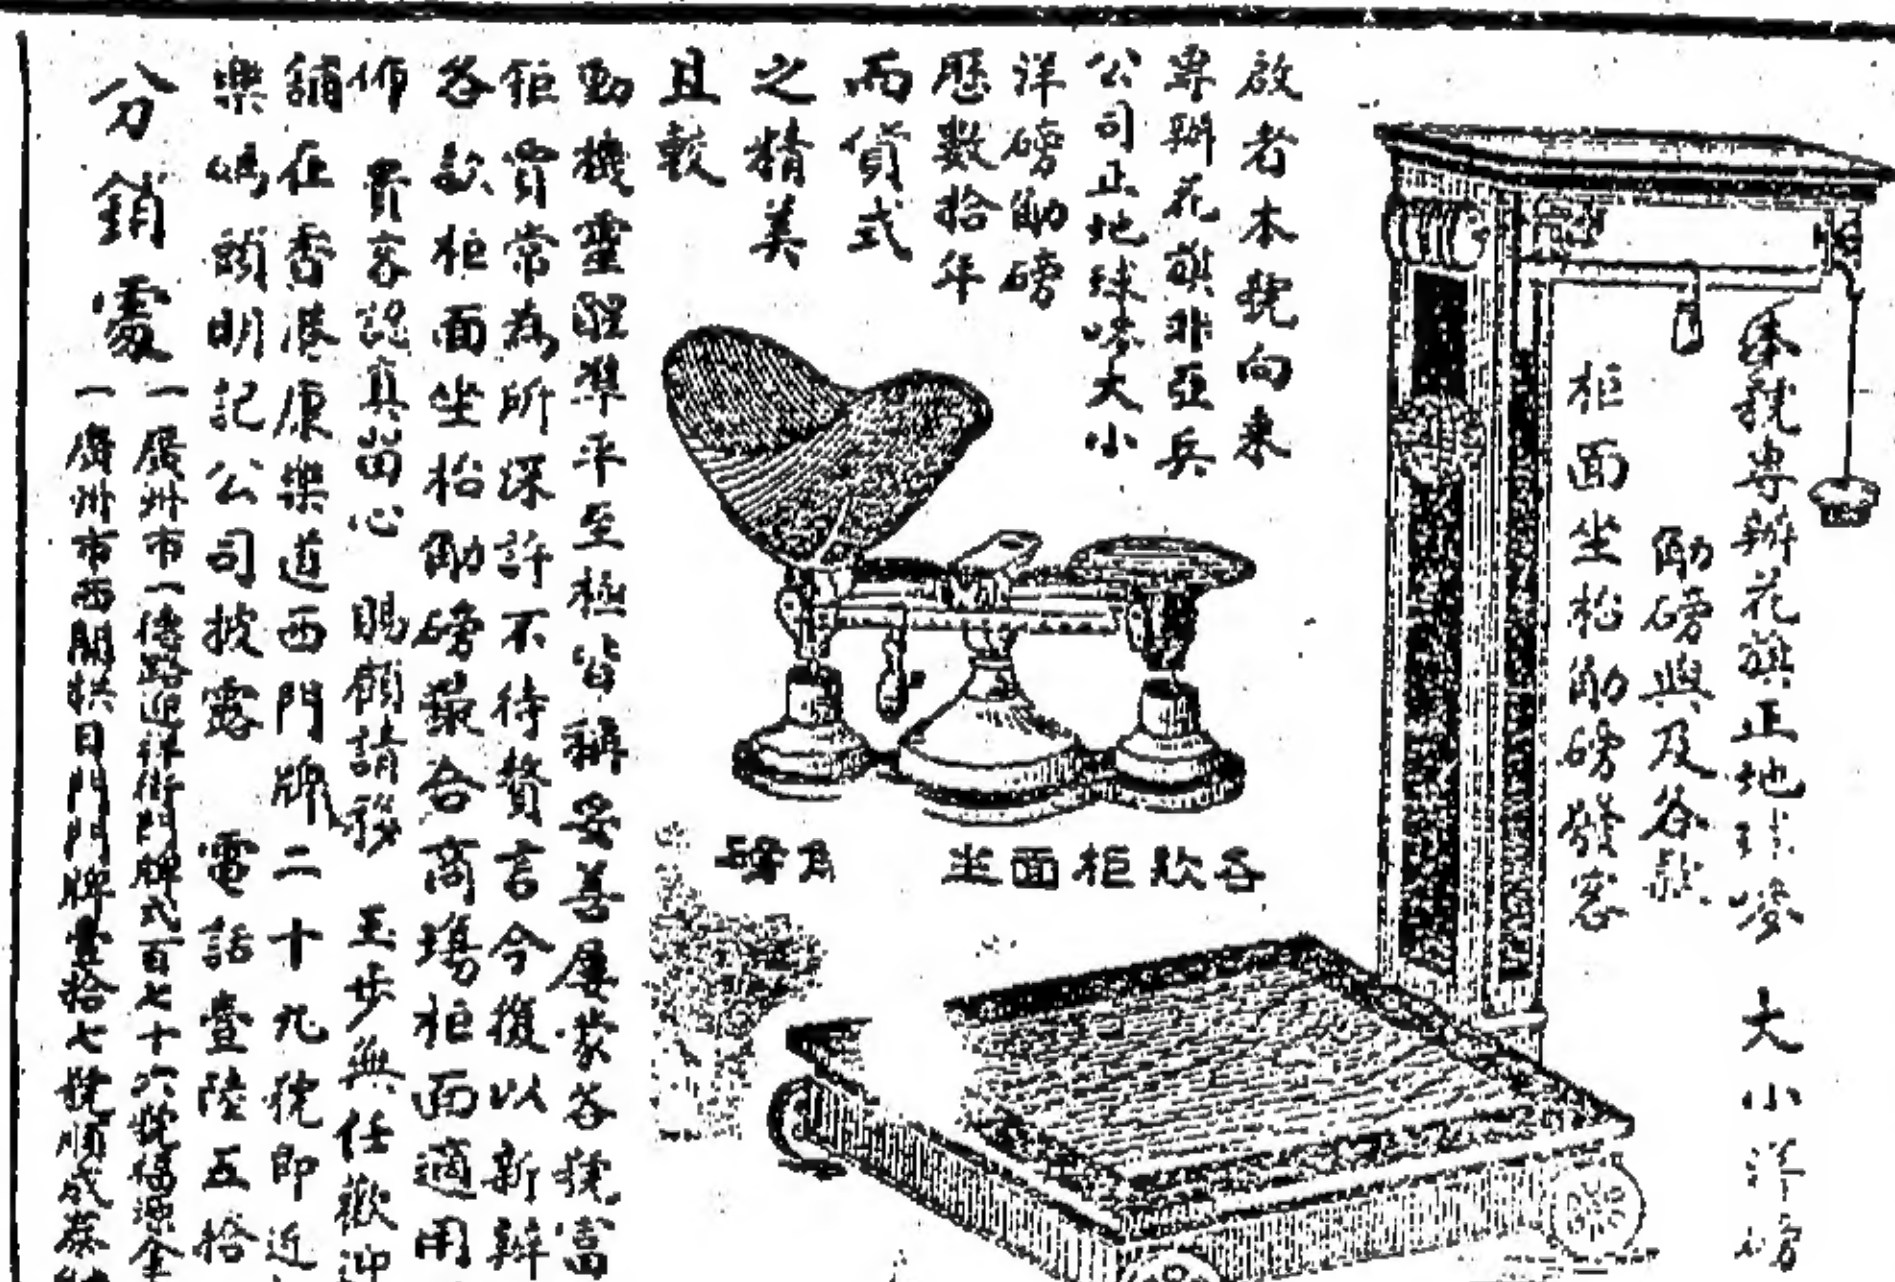 本號專辦花旗正地球嘜 大小洋磅
劬磅與及各款
柜面坐枱劬磅發客
啟者本號向来
專辦花旗非亞兵
公司正地球嘜大小
洋磅劬磅
歷数拾年
而貨式
之精美
且較
各欵柜面坐
角磅
動機靈醒準平至極皆稱妥善屢蒙各號富
鉅賈常為所深許不待贅言今復以新辦
各款柜面坐枱劬磅最合商塲柜面適用
仰 貴客認真留心 賜顧請移 玉步無任歡迎
舖在香港康樂道西門牌二十九號即近
樂 頭明記公司披露 電話壹陸五拾
分銷處
一廣州市一德路迎祥街門牌式百七十六號福源金
一廣州市西關拱日門門牌壹拾七號順成